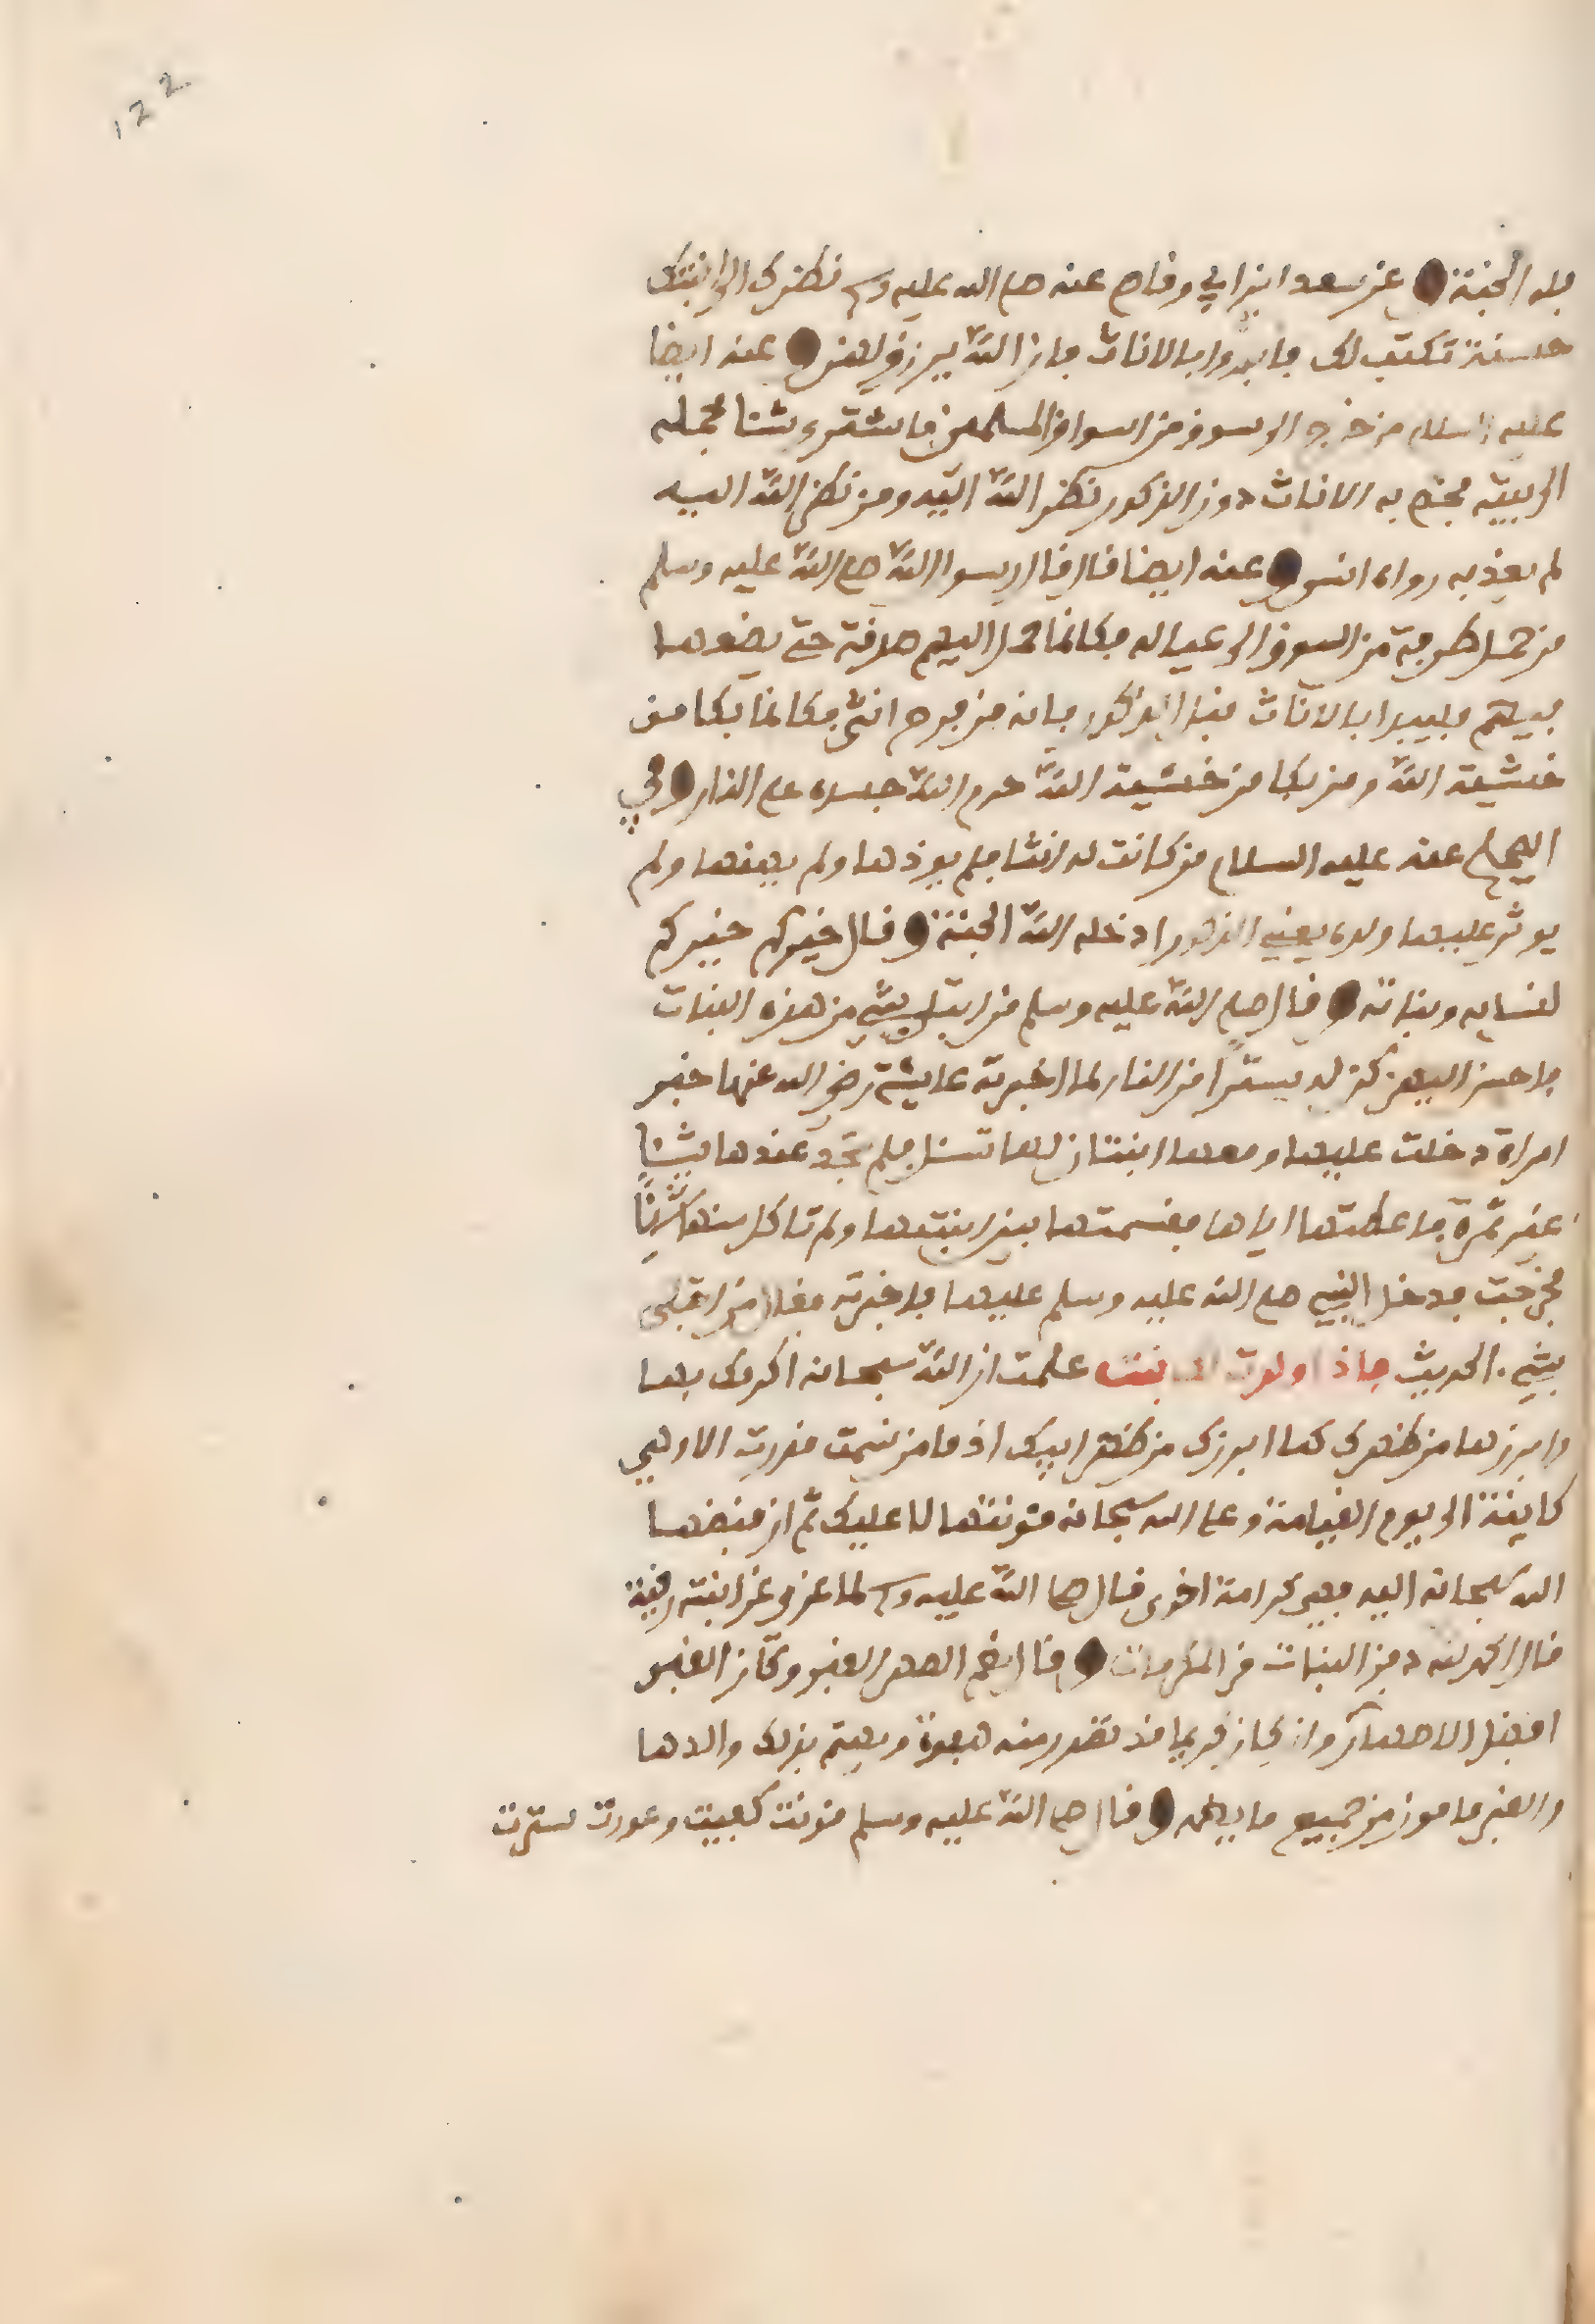 122
فله الجنة وعن سعد ابن ابي وقاص عنه صلى الله عليه وسلم نظرك الى ابنتك
حسنة تكتب لك فابدوا بالاناث فان الله يرزق لهن وعنه ايضا
عليه السلام من خرج الى سوق من اسواق المسلمين فاشترى شيئا فحمله
الى بيته فخص به الاناث دون الذكور نظر الله اليه ومن نظر الله اليه
لم يعذبه رواه انس وعنه ايضا قال قال رسول الله صلى الله عليه وسلم
من حمل طرفة من السوق الى عياله فكانما حمل اليهم صدقة حتى يضعوها
فيهم فليبدا بالاناث قبل الذكور فانه من فرح انثى فكانما بكا من
خشية الله ومن بكا من خشية الله حرم الله جسده على النار وفي
عنه عليه السلام من كانت له انثا فلم يوذها ولم يهنها ولم
يوثر عليها ولده يعني الذكور ادخله الله الجنة وقال خيركم خيركم
لنسايه وبناته وقال صلى الله عليه وسلم من ابتلي بشي من هذه البنات
فاحسن اليهن كن له سترا من النار لما اخبرته عايشة رضي الله عنها خبر
امراة دخلت عليها ومعها ابنتان لها تسئل فلم تجد عندها شيئا
غير تمرة فاعطتها اياها فقسمتها بين ابنتيها ولم تاكل منها شيئا
فخرجت فدخل النبي صلى الله عليه وسلم عليها فاخبرته فقال من ابتلى
بشي. الحديث فاذا ولدت لك بنت علمت ان الله سبحانه اكرمك بها
وابرزها من ظهرك كما ابرزك من ظهر ابيك اذ ما من نسمة قدرت الا وهي
كاينة الى يوم القيامة وعلى الله سبحانه مئونتها لا عليك ثم ان قبضها
الله سبحانه اليه فهي كرامة اخرى قال صلى الله عليه وسلم لما عزي عن ابنته رقية
قال الحمد لله دفن البنات من المكرمات وقال نعم الصهر القبر وكان القبر
افضل الاصهار وان قد تقدر منه هفوة ويهتم بذلك والدها
والقبر مامون من جميع ما وقال صلى الله عليه وسلم مئونت كفيت وعورت سترت